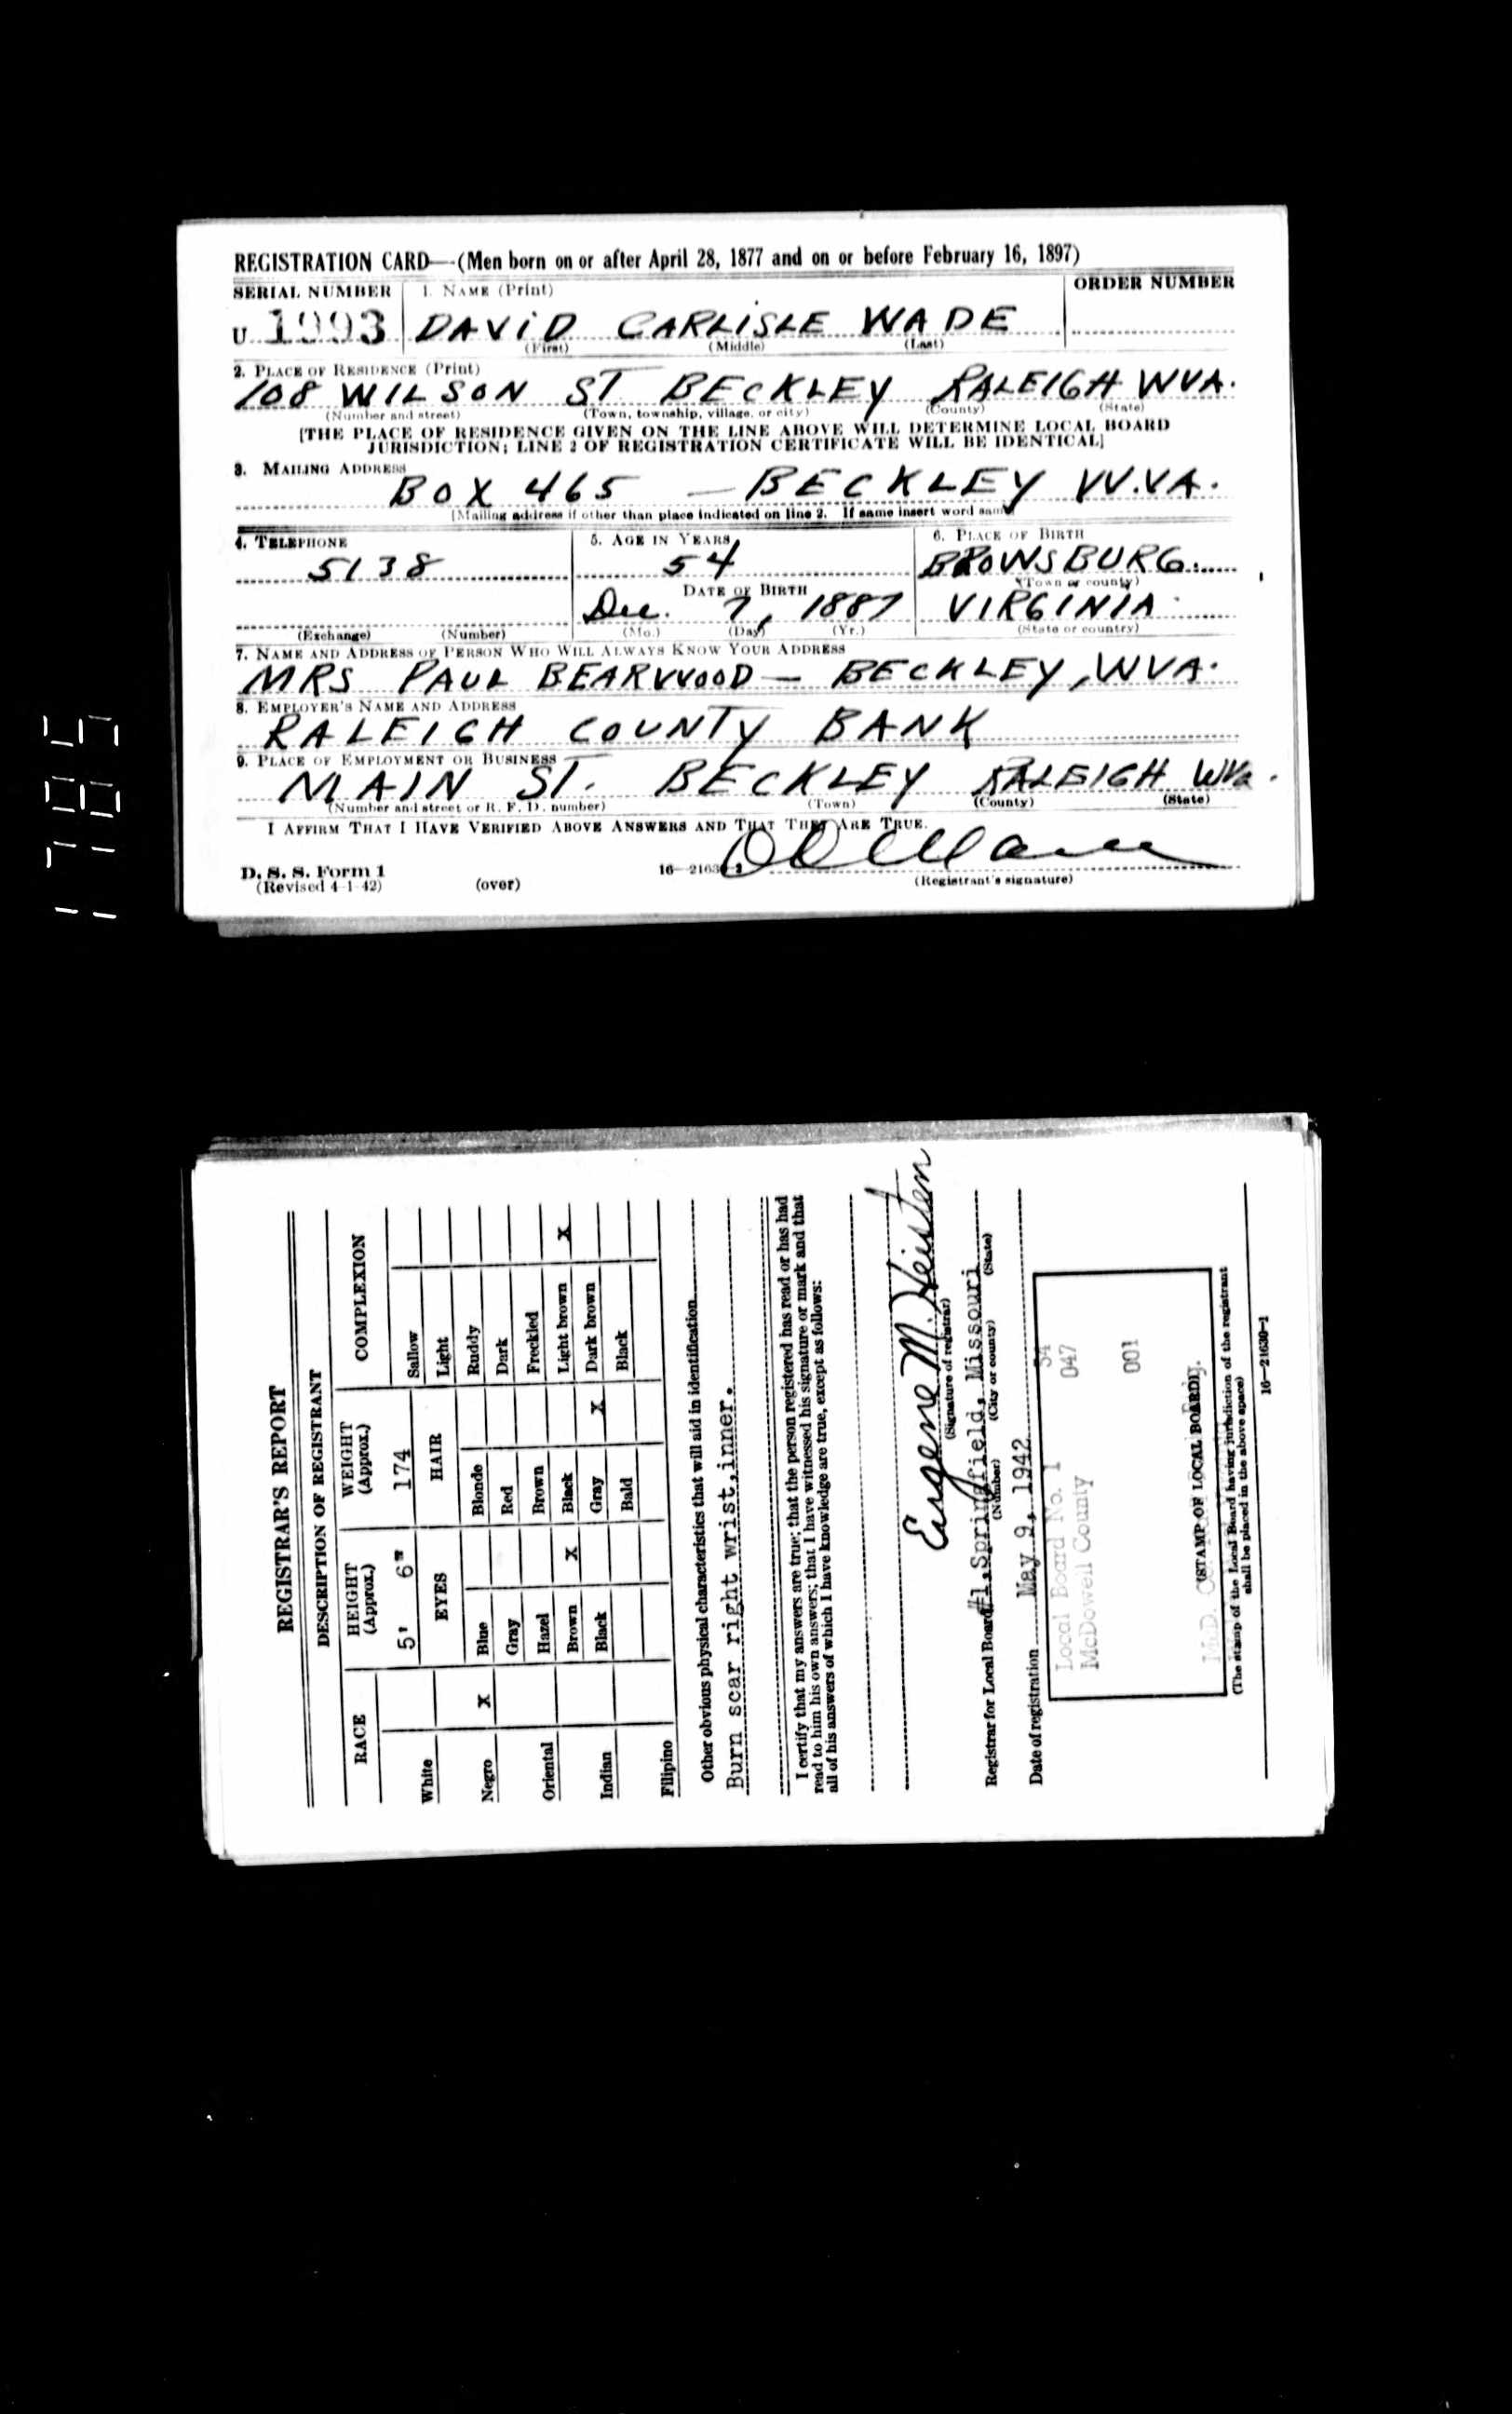 REGISTRATION CARD—(Men born on or after April 28, 1877 and on or before February 16, 1897)
SERIAL NUMBER 1. NAME (Print) ORDER NUMBER
U 1993 DAVID CARLISLE WADE
(First) (Middle) (Last)
2. PLACE OF RESIDENCE (Print)
108 WILSON ST BECKLEY RALEIGH WVA.
(Number and street) (Town, township, village, or city) (County) (State)
[THE PLACE OF RESIDENCE GIVEN ON THE LINE ABOVE WILL DETERMINE LOCAL BOARD
JURISDICTION; LINE 2 OF REGISTRATION CERTIFICATE WILL BE IDENTICAL]
3. MAILING ADDRESS
BOX 465 — BECKLEY W.VA.
[Mailing address if other than place indicated on line 2. If same insert word same]
4. TELEPHONE 5. AGE IN YEARS 6. PLACE OF BIRTH
5138 54 BROWSBURG
(Town or county)
DATE OF BIRTH
Dec. 7, 1887 VIRGINIA
(Exchange) (Number) (Mo.) (Day) (Yr.) (State or country)
7. NAME AND ADDRESS OF PERSON WHO WILL ALWAYS KNOW YOUR ADDRESS
MRS PAUL BEARWOOD — BECKLEY, WVA.
8. EMPLOYER'S NAME AND ADDRESS
RALEIGH COUNTY BANK
9. PLACE OF EMPLOYMENT OR BUSINESS
MAIN ST. BECKLEY RALEIGH WVa.
(Number and street or R. F. D. number) (Town) (County) (State)
I AFFIRM THAT I HAVE VERIFIED ABOVE ANSWERS AND THAT THEY ARE TRUE.
D. S. S. Form 1
(Revised 4-1-42) (over) 16—21630-2 (Registrant's signature)
REGISTRAR'S REPORT
DESCRIPTION OF REGISTRANT
RACE HEIGHT (Approx.) WEIGHT (Approx.) COMPLEXION
5' 6" 174
EYES HAIR
White Sallow
Light
Negro x Blue Blonde Ruddy
Gray Red Dark
Oriental Hazel Brown Freckled
Brown x Black Light brown x
Indian Black Gray x Dark brown
Bald Black
Filipino
Other obvious physical characteristics that will aid in identification
Burn scar right wrist,inner.
I certify that my answers are true; that the person registered has read or has had
read to him his own answers; that I have witnessed his signature or mark and that
all of his answers of which I have knowledge are true, except as follows:
Eugene M. Heisten
(Signature of registrar)
Registrar for Local Board #1,Springfield, Missouri
(Number) (City or county) (State)
Date of registration May 9, 1942
54
Local Board No. 1 047
McDowell County
001
(STAMP OF LOCAL BOARD)
(The stamp of the Local Board having jurisdiction of the registrant
shall be placed in the above space)
16—21630-1